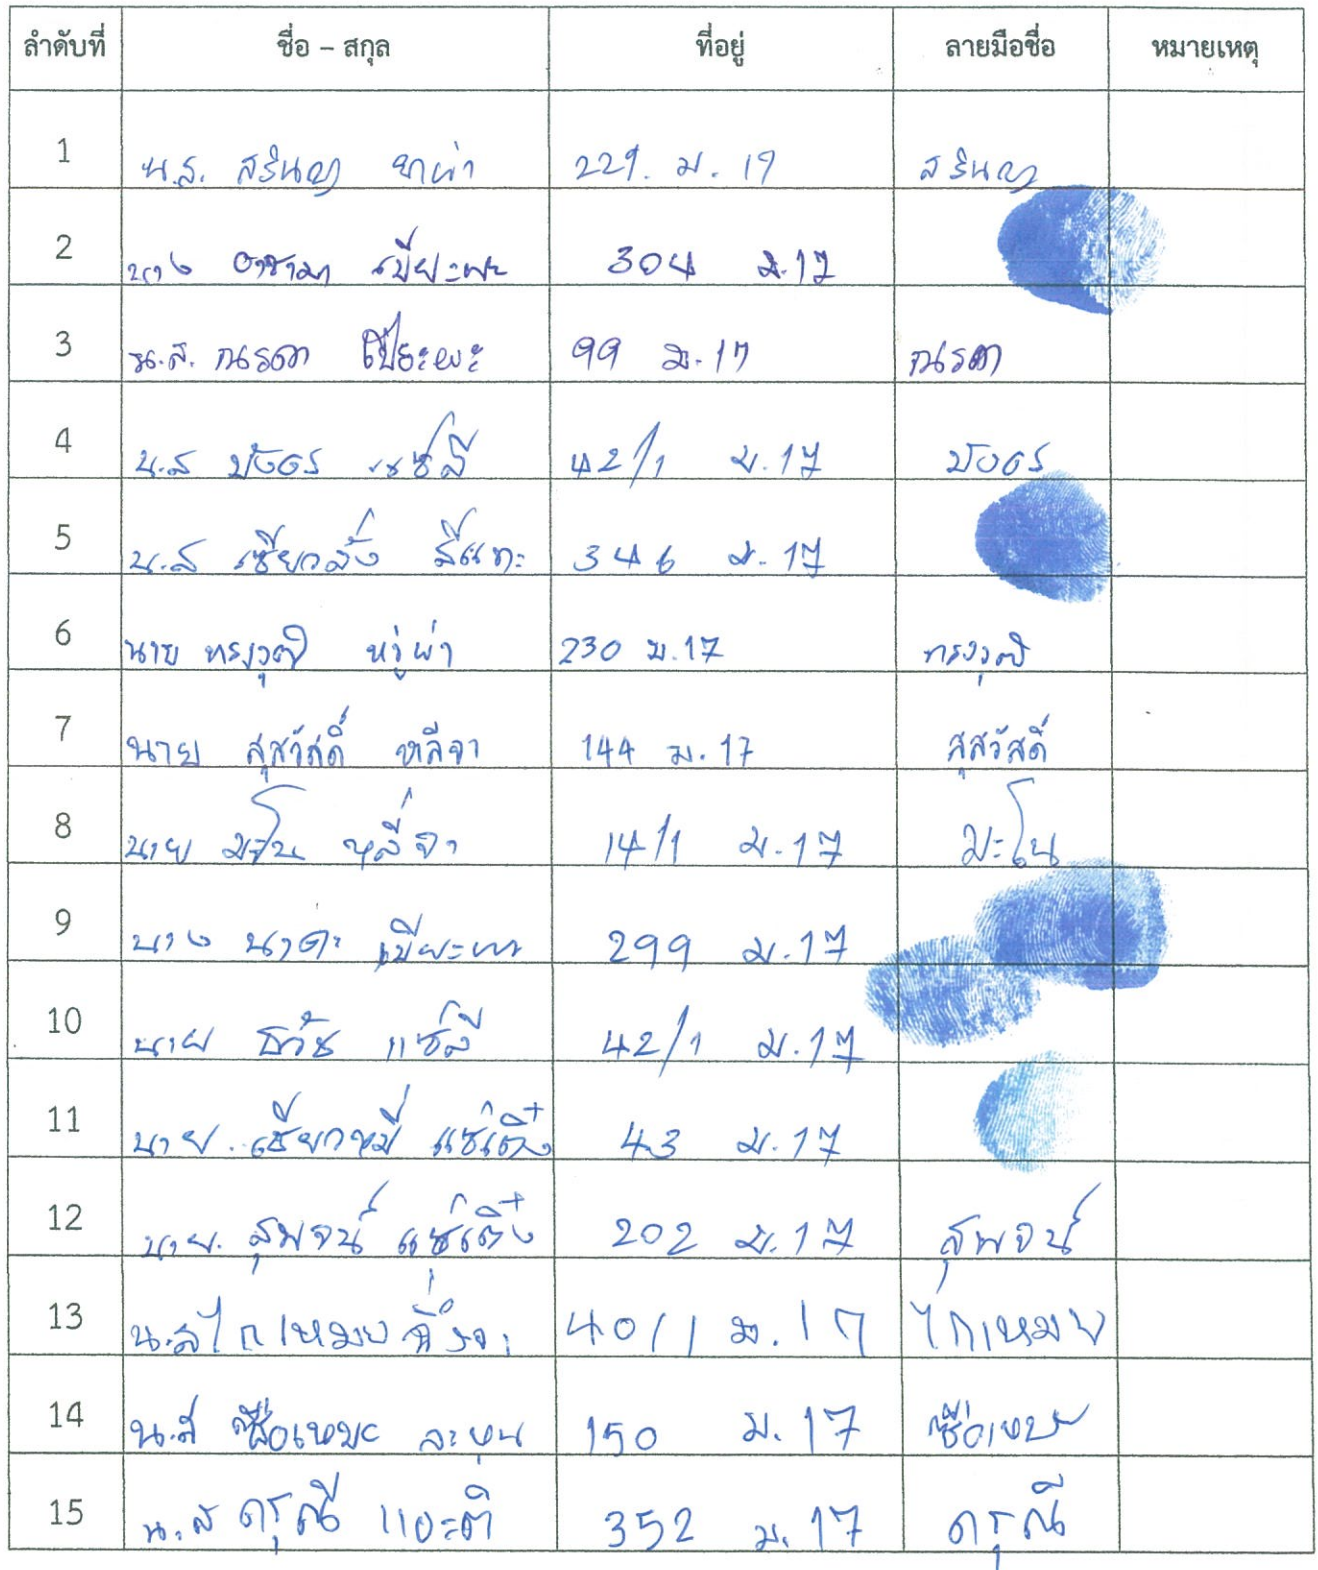 ลำดับที่ ชื่อ – สกุล ที่อยู่ ลายมือชื่อ หมายเหตุ
1 น.ส. สรินญา 229. ม. 17 สรินญา
2 นาง อาซามา เบียะผะ 304 ม.17
3 น.ส. ณรดา 99 ม.17 ณรดา
4 น.ส บังอร แซ่ลี 42/1 ม.17 บังอร
5 น.ส เซียวสั่ง 346 ม.17
6 นาย ทรงวุฒิ หวู่ผ่า 230 ม.17 ทรงวุฒิ
7 นาย สุสวัสดิ์ หลีจา 144 ม.17 สุสวัสดิ์
8 นาย มะโน หลี่จา 14/1 ม.17 มะโน
9 นาง นาคา เบียะผะ 299 ม.17
10 นาย ธวัช แซ่ลี 42/1 ม.17
11 นาย. เซียวหมี่ แซ่เติ๋ง 43 ม.17
12 นาย. สุพจน์ แซ่เติ๋ง 202 ม.17 สุพจน์
13 น.ส ไกเหมย 40/1 ม.17 ไกเหมย
14 น.ส ซือเหมะ 150 ม.17 ซือเหมะ
15 น.ส ดรุณี แยะติ 352 ม.17 ดรุณี